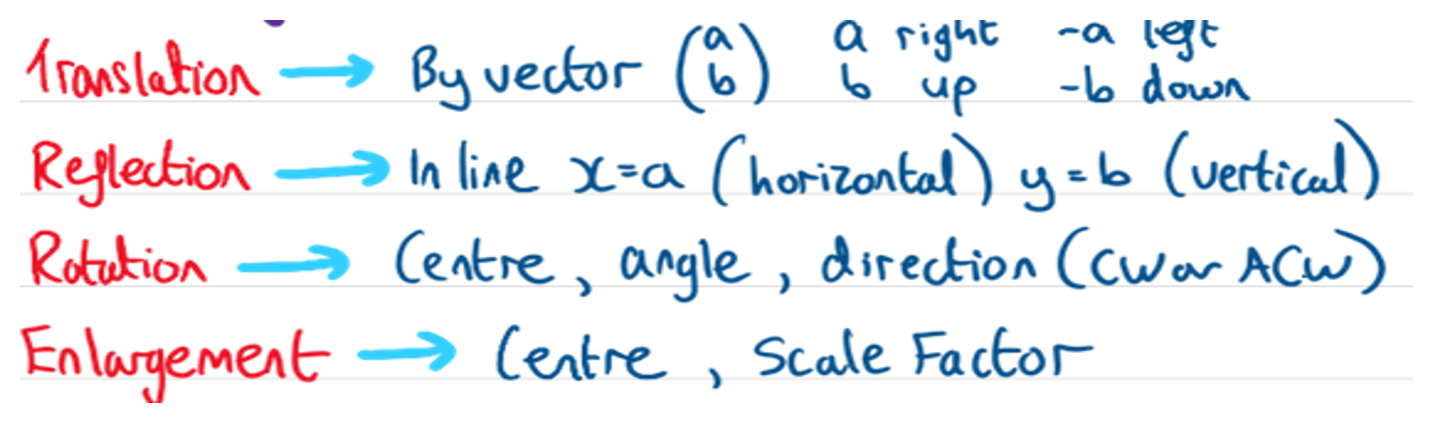 Translation → By vector (a b) a right -a left
b up -b down
Reflection → In line x=a (horizontal) y=b (vertical)
Rotation → Centre, angle, direction (CW or ACW)
Enlargement → Centre, Scale Factor